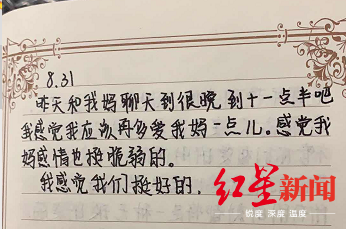 8.31
昨天和我妈聊天到很晚到十一点半吧
我感觉我应该再多爱我妈一点儿。感觉我
妈感情也挺脆弱的。
我感觉我们挺好的，
红星新闻
锐度 深度 温度